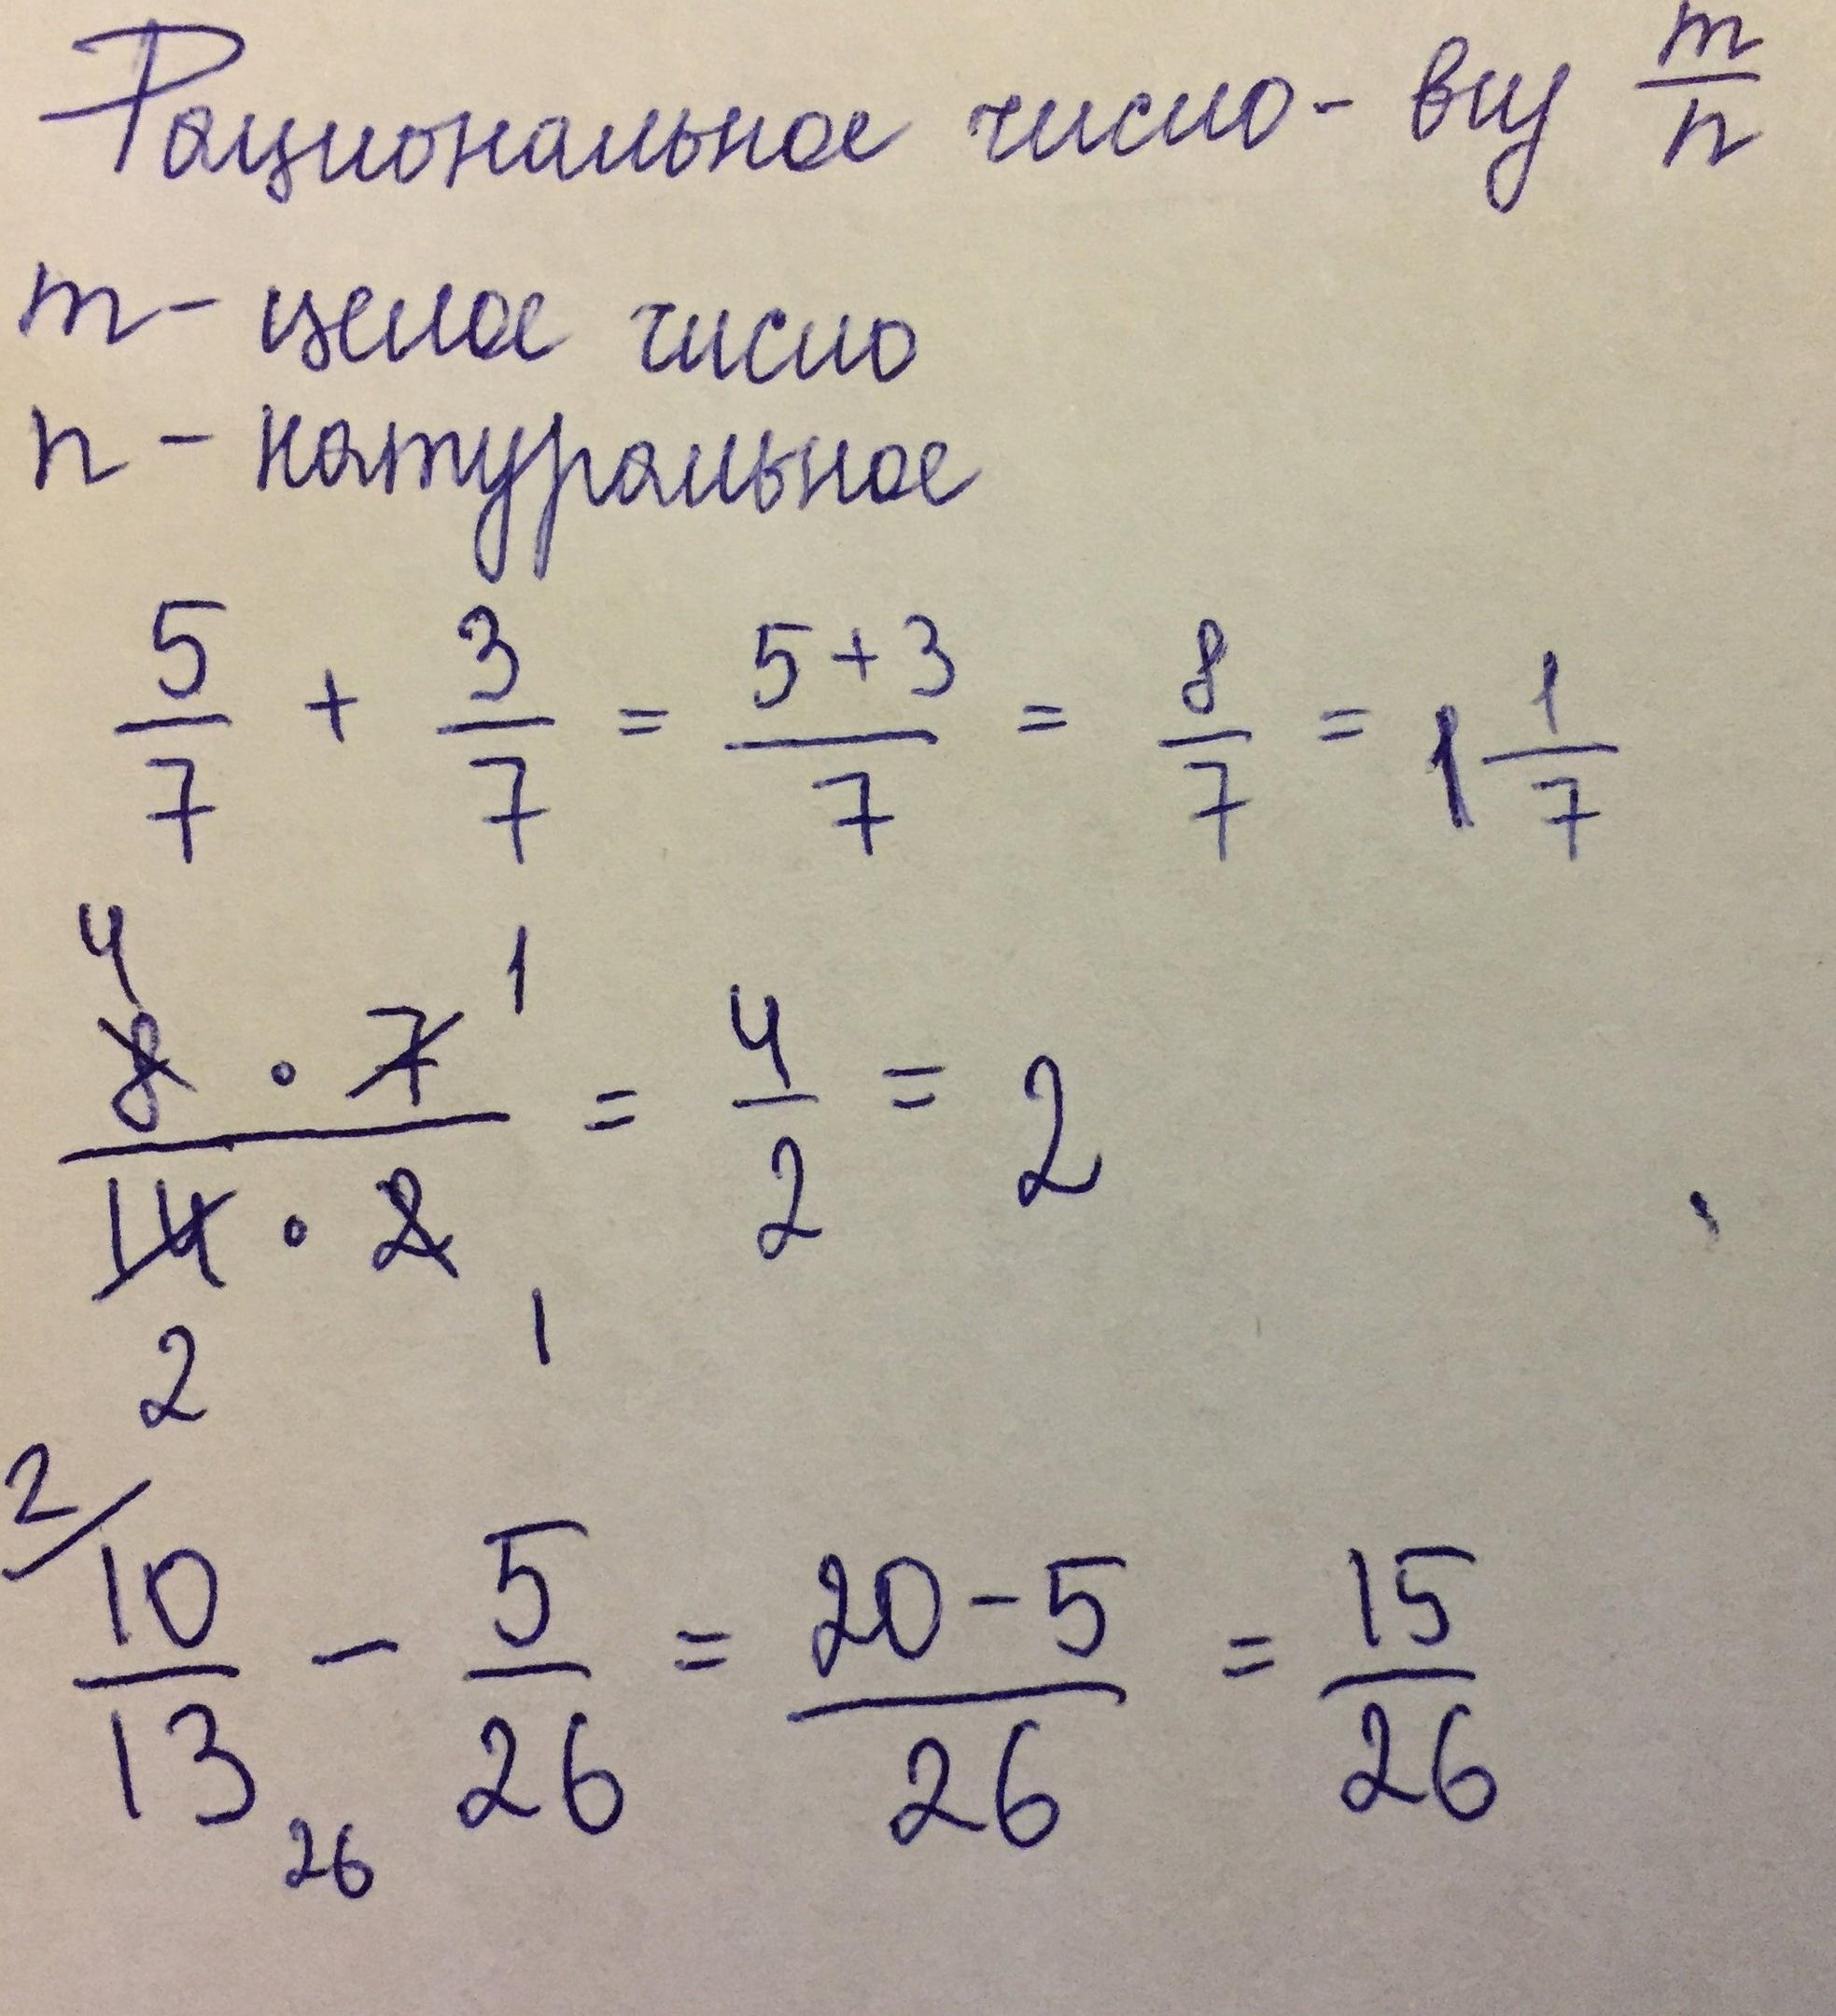 Рациональное число - вид m/n
m - целое число
n - натуральное
5/7 + 3/7 = 5+3/7 = 8/7 = 1 1/7
4 1
8 · 7 / 14 · 2 = 4/2 = 2
2 1
2/
10/13 - 5/26 = 20-5/26 = 15/26
26